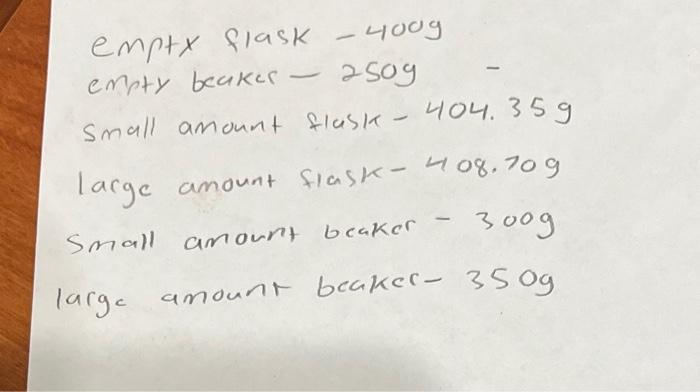 empty flask - 400g
empty beaker - 250g -
small amount flask - 404.35g
large amount flask - 408.70g
small amount beaker - 300g
large amount beaker - 350g